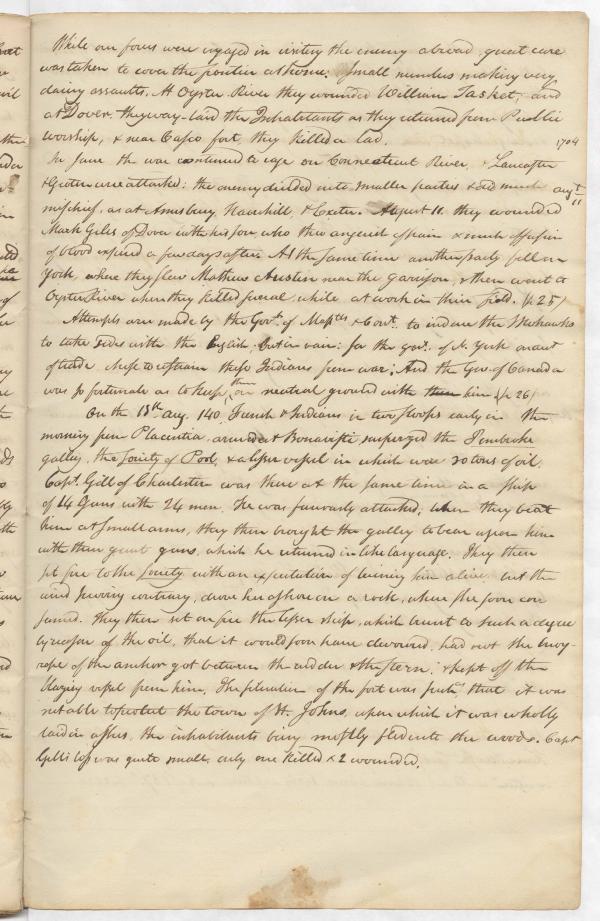 While our forces were ingaged in visiting the enemy abroad, great care
was taken to cover the frontier at home; Small numbers making very
daring assaults. At Oyster River they wounded William Tasket, and
at Dover they way-laid the Inhabitants as they returned from Public
worship, & near Casco fort, they killed a lad.
1704
In June the war continued to rage on Connecticut River. Lancaster
& Groton were attacked: the enemy divided into smaller parties & did much
augt 11
mischief, as at Amesbury, Haverhill, & Exeter. August 11. they wounded
Mark Giles of Dover with his son who thro anguish of pain & much effusion
of blood expired a few days after. At the same time another party fell on
York, where they slew Mathew Austin near the Garrison, & then went to
Oyster River where they killed several while at work in their field. (p. 25)
Attempts are made by the Govt. of Masstts & Cont. to induce the Mohawks
to take sides with the English but in vain: for the govt. of N. York on acct
of trade chose to restrain these Indians from war; And the Gov. of Canada
was so fortunate as to keep them on neutral ground with him (p. 26)
On the 18th. aug. 140 French & Indians in two sloops early in the
morning from Placentia arrived at Bonavista surprized the Pembroke
galley, the Society of Pool, & a lesser vessel in which were 20 tons of oil.
Capt. Gill of Charleston was there at the same time in a ship
of 14 Guns with 24 men. He was furiously attacked; when they beat
him at small arms, they then brought the galley to bear upon him
with their great guns, which he returned in like language. They then
set fire to the Society with an expectation of burning him alive, but the
wind proving contrary, drove her ashore on a rock, where she soon con
sumed. They then set on fire the lesser ship, which burnt to such a degree
by reason of the oil, that it would soon have devoured, had not the buoy-
rope of the anchor got between the rudder & the stern; & kept off the
blazing vessel from him. The situation of the fort was such, that it was
not able to protect the town of St. Johns, upon which it was wholly
laid in ashes, the inhabitants being mostly fled into the woods. Capt
Gill's loss was quite small, only one killed & 2 wounded.